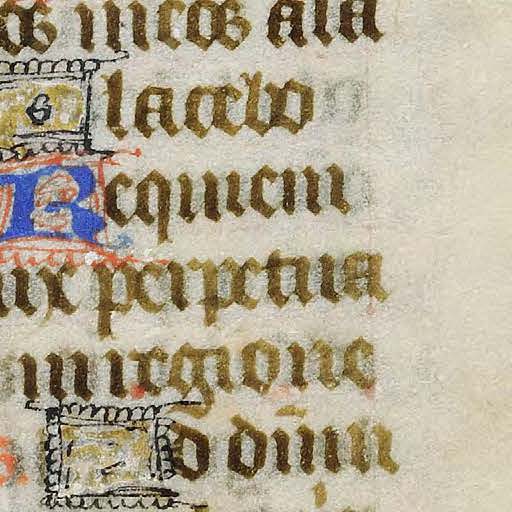 os meos ala
Placebo
Requiem
ux perpetua
in regione
Ad dn̄m